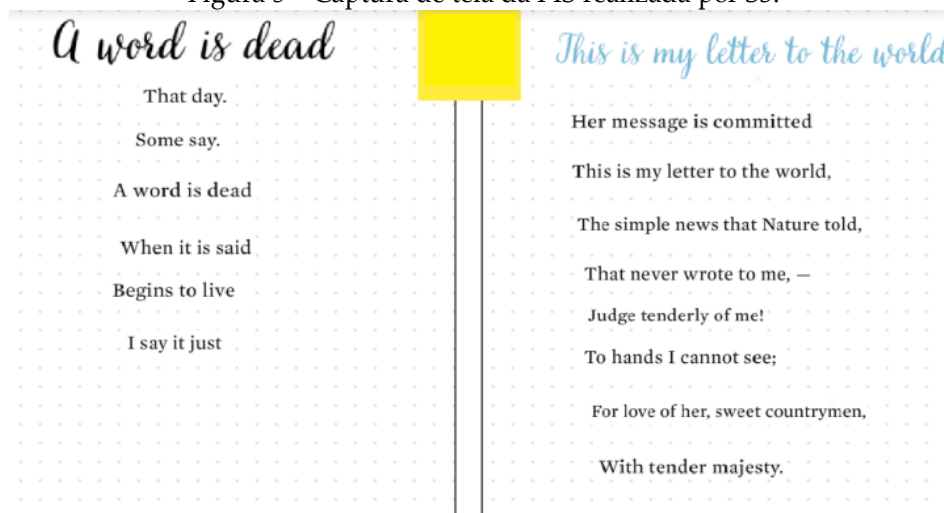 Figura 3 – Captura de tela da
A word is dead
That day.
Some say.
A word is dead
When it is said
Begins to live
I say it just
This is my letter to the world
Her message is committed
This is my letter to the world,
The simple news that Nature told,
That never wrote to me, —
Judge tenderly of me!
To hands I cannot see;
For love of her, sweet countrymen,
With tender majesty.